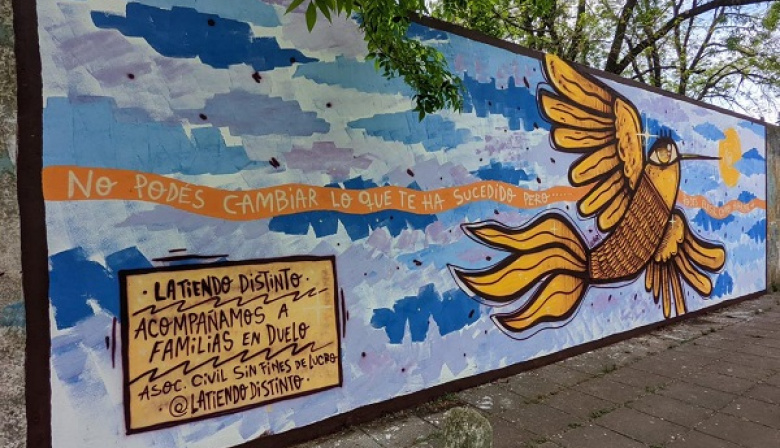 NO PODÉS CAMBIAR LO QUE TE HA SUCEDIDO PERO....
·LATIENDO DISTINTO·
ACOMPAÑAMOS A
FAMILIAS EN DUELO
ASOC. CIVIL SIN FINES DE LUCRO
@LATIENDO DISTINTO·